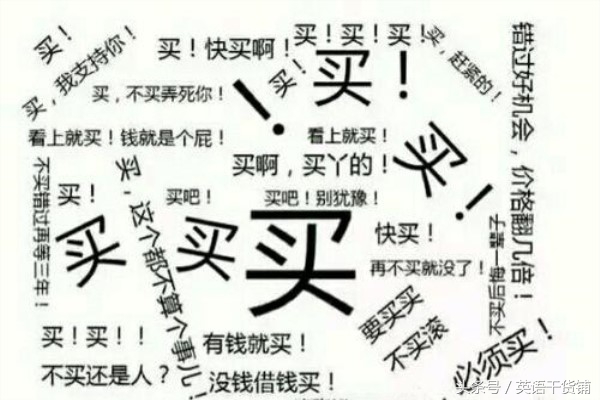 买！
买，我支持你！
买！快买啊！
买！买！买！
买，赶紧的！
错过好机会，价格翻几倍！
买，不买弄死你！
买！
买！
！
看上就买！钱就是个屁！
看上就买！
买！
买啊，买丫的！
不买错过再等三年！
买！
买，这个都不算个事儿！
买吧！
买吧！别犹豫！
买
买
买
快买！
再不买就没了！
不买后悔一辈子
要买买
不买滚
买！买！！
有钱就买！
不买还是人？
没钱借钱买！
必须买！
头条号／英语干货铺